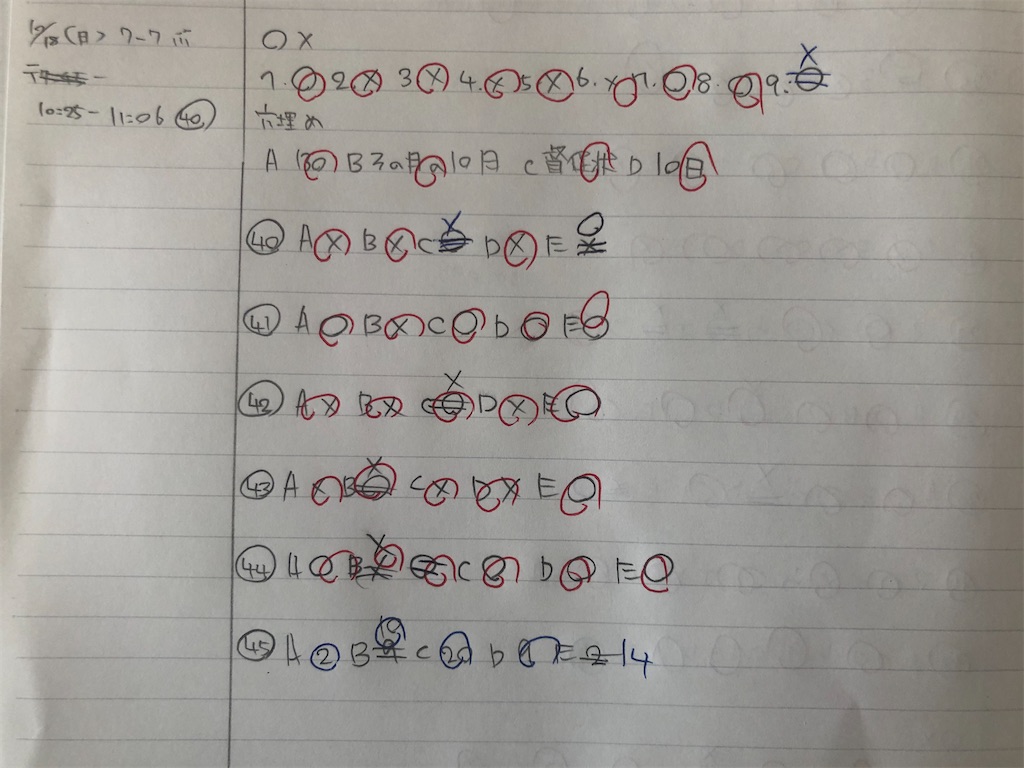 10/18(日) 7-7
10:25-11:06 40
○×
1. ○ 2 × 3 × 4. × 5 × 6. × 7. ○ 8. ○ 9. ×
穴埋め
A 30 B 3ヵ月 10日 C 督促状 D 10日
㊵ A × B × C × D × E ○
㊶ A ○ B × C ○ D ○ E ○
㊷ A × B × C × D × E ○
㊸ A B × C × D × E ○
㊹ A B × C D ○ E ○
㊺ A ② B C 20 D E 14